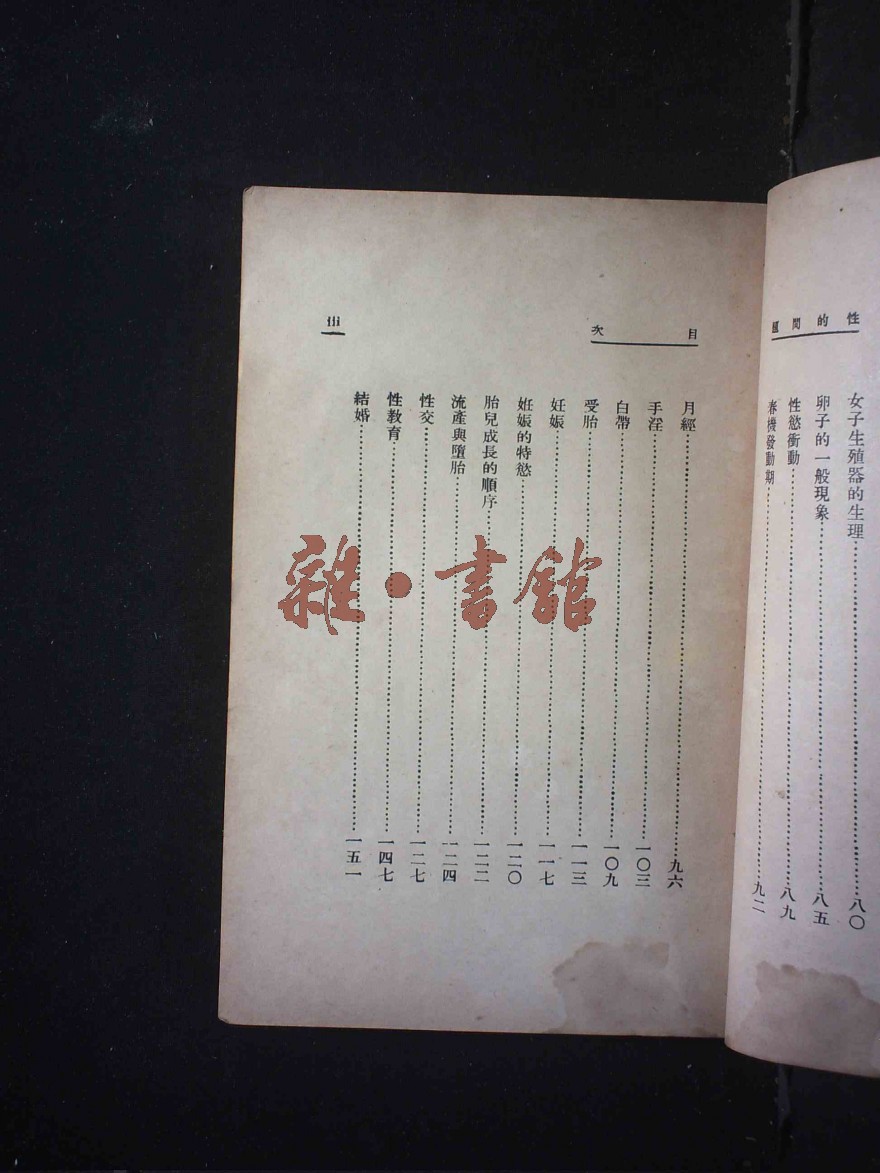 性的問題
女子生殖器的生理……八〇
卵子的一般現象……八五
性慾衝動……八九
春機發動期……九二
目次
三
月經……九六
手淫……一〇三
白帶……一〇九
受胎……一一三
妊娠……一一七
妊娠的特慾……一二〇
胎兒成長的順序……一二二
流產與墮胎……一二四
性交……一二七
性教育……一四七
結婚……一五一
雜·書館